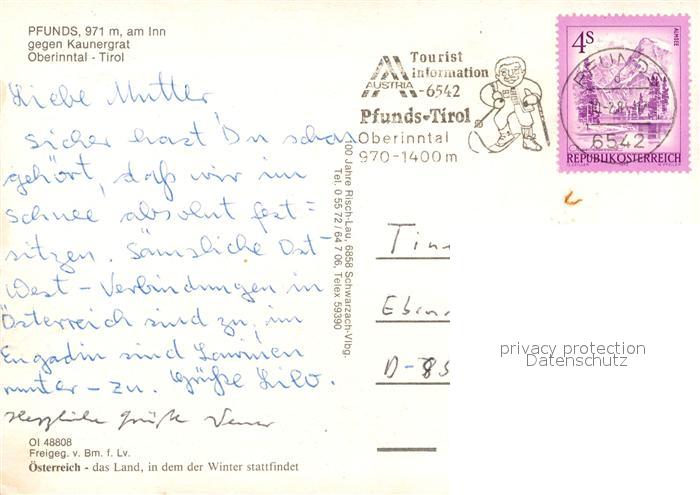 PFUNDS, 971 m, am Inn
gegen Kaunergrat
Oberinntal - Tirol
Liebe Mutter,
sicher hast Du schon
gehört, daß wir im
Schnee absolut fest=
sitzen. Sämtliche Ost-
West-Verbindungen in
Österreich sind zu, im
Engadin sind Lawinen
runter - zu. Grüße Lilo.
Herzliche Grüße
OI 48808
Freigeg. v. Bm. f. Lv.
Österreich - das Land, in dem der Winter stattfindet
100 Jahre Risch-Lau, 6858 Schwarzach-Vlbg.
Tel. 0 55 72 / 64 7 06, Telex 59390
AUSTRIA
Tourist
information
-6542
Pfunds-Tirol
Oberinntal
970-1400 m
4S
ALMSEE
REPUBLIK ÖSTERREICH
PFUNDS
6542
D-8
privacy protection
Datenschutz